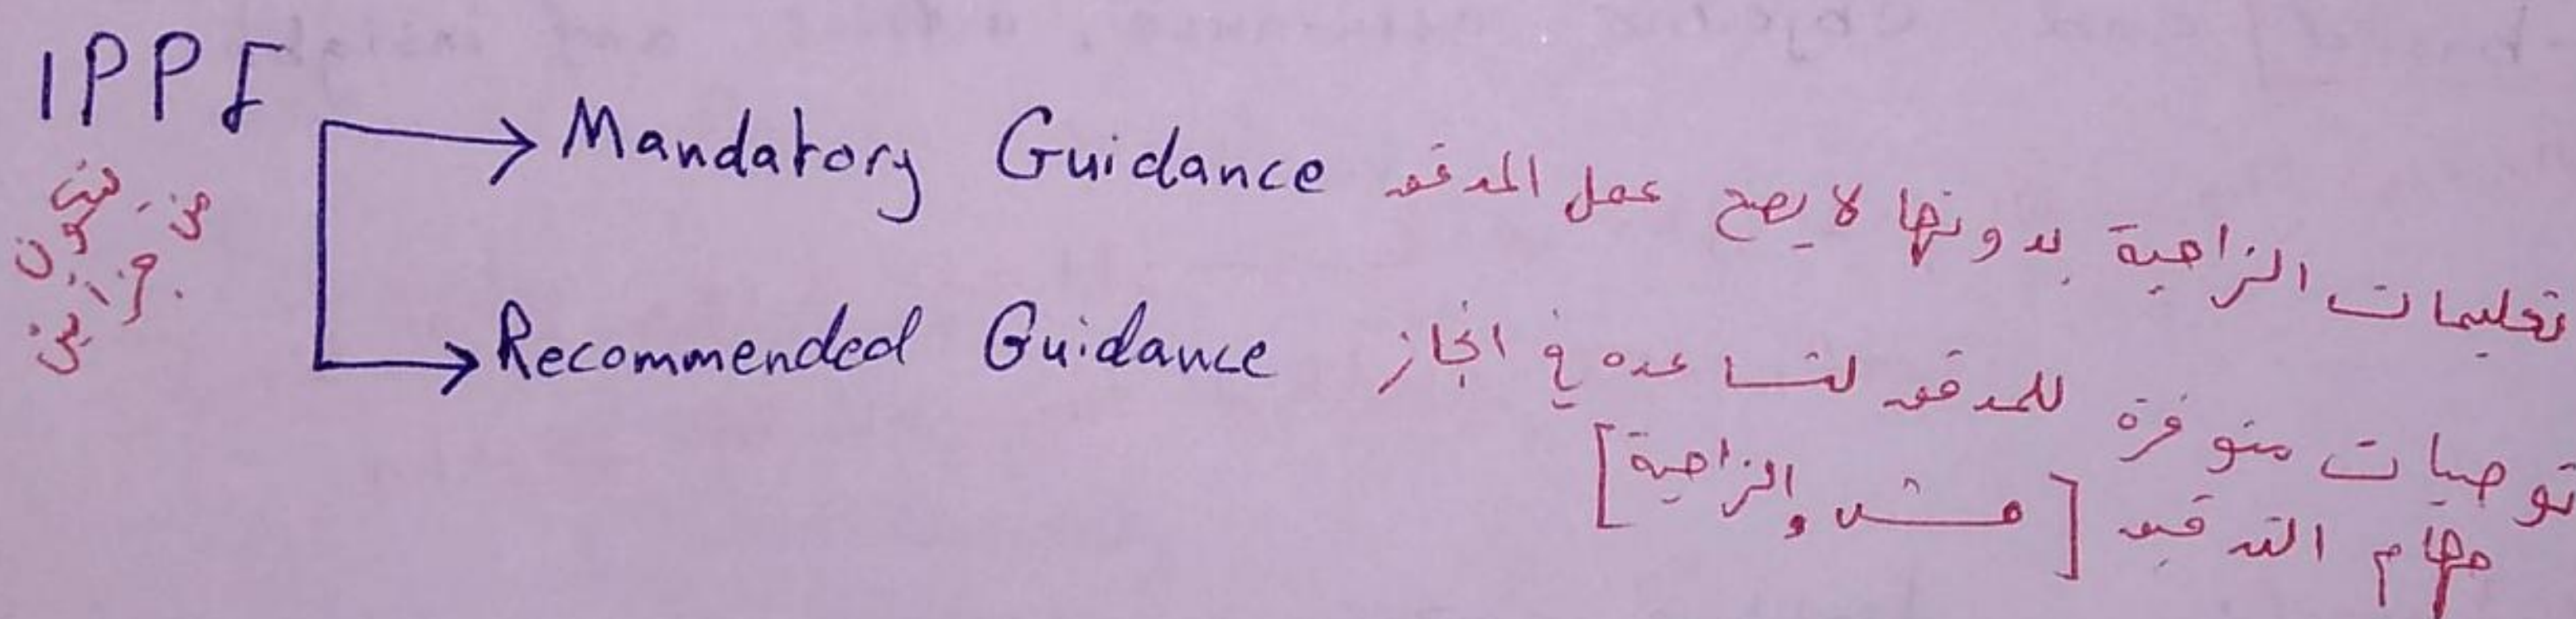 IPPF
يتكون من
جزأين
Mandatory Guidance تعليمات الزامية بدونها لا يصح عمل المدقق
Recommended Guidance توصيات متوفرة للمدقق لتساعده في انجاز
مهام التدقيق [مش الزامية]